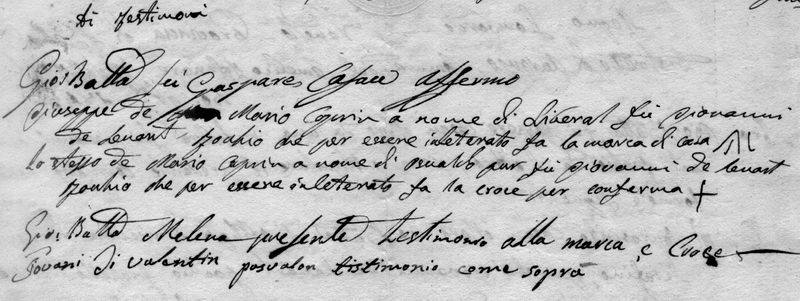 di Testimoni
Gio: Batta fu Gaspare Casacc affermo
Giuseppe de Mario Coprin a nome di Liberal fu Giovanni
de Levant Zochio che per essere inleterato fa la marca di casa
lo stesso de Mario Coprin a nome di osvaldo pur fu Giovanni de Levant
Zochio che per essere inleterato fa la croce per conferma +
Gio: Batta Melena presente testimonio alla marca, e Croce
Giovani di valentin posvalon tistimonio come sopra